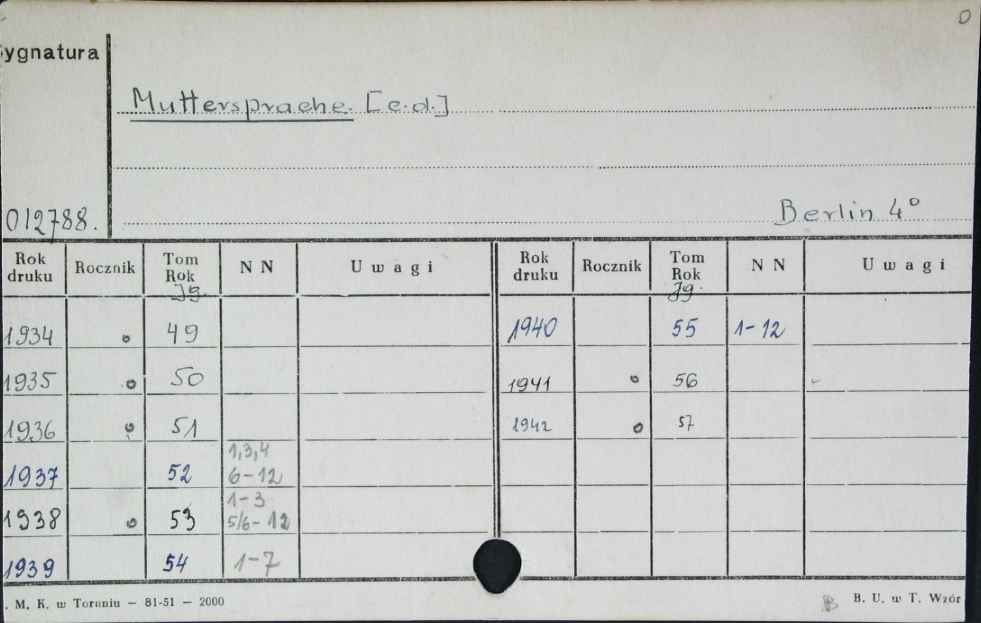 Sygnatura
Muttersprache. [c.d.]
012788.
Berlin 4°
Rok druku Rocznik Tom Rok Jg. N N Uwagi Rok druku Rocznik Tom Rok Jg. N N Uwagi
1934 o 49 1940 55 1-12
1935 o 50 1941 o 56
1936 o 51 1942 o 57
1937 52 1,3,4 6-12
1938 o 53 1-3 5/6-12
1939 54 1-7
. M. K. w Toruniu — 81-51 — 2000
B. U. w T. Wzór